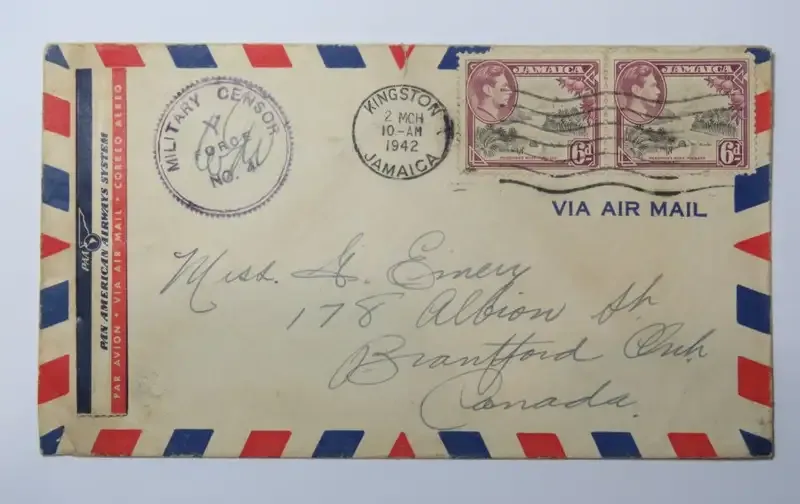 MILITARY CENSOR
FORCE
NO. 4
KINGSTON
2 MCH
10-AM
1942
JAMAICA
JAMAICA
6d
JAMAICA
6d
VIA AIR MAIL
PAN AMERICAN AIRWAYS SYSTEM
PAR AVION • VIA AIR MAIL • CORREO AEREO
PAA
Miss. G. Emery
178 Albion St.
Brantford Ont.
Canada.